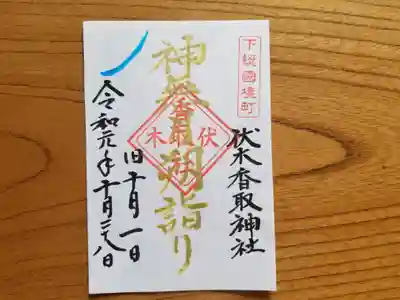 下総國境町
伏木香取神社
神無月朔詣り
伏木
香取
旧十月一日
令和元年十月二十八日